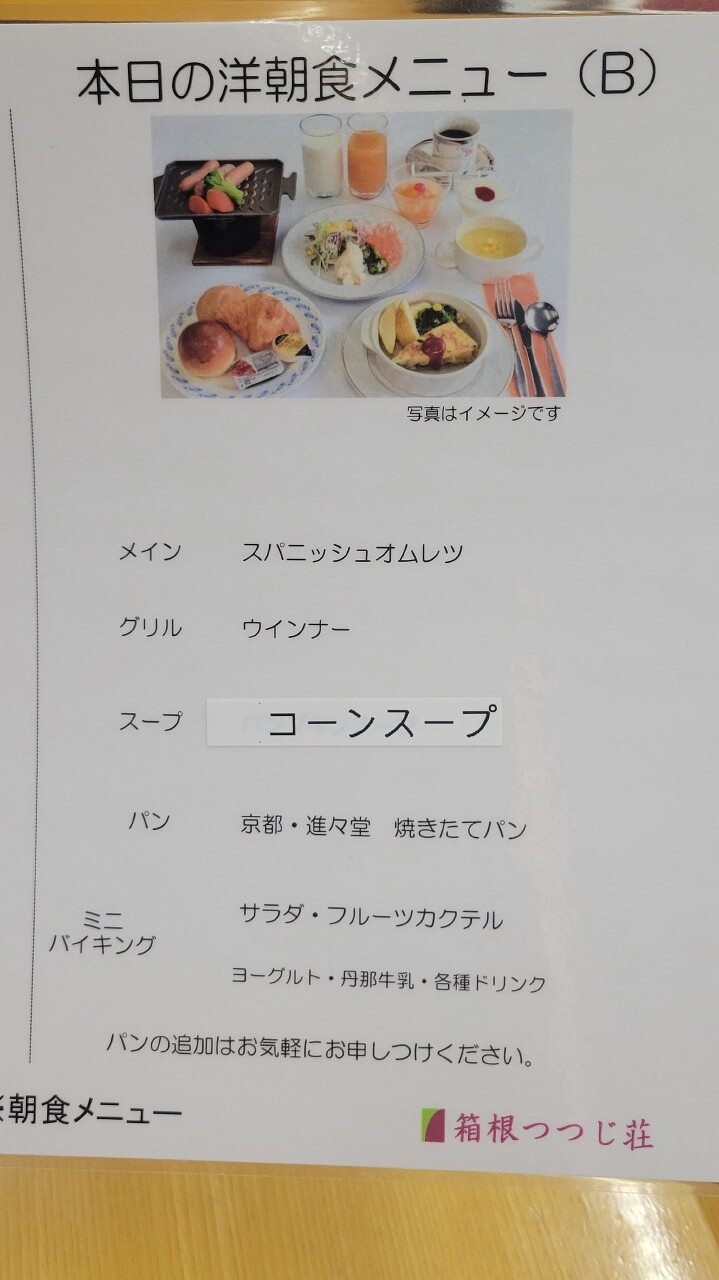 本日の洋朝食メニュー（B）
写真はイメージです
メイン　スパニッシュオムレツ
グリル　ウインナー
スープ　コーンスープ
パン　京都・進々堂　焼きたてパン
ミニ
バイキング
サラダ・フルーツカクテル
ヨーグルト・丹那牛乳・各種ドリンク
パンの追加はお気軽にお申しつけください。
朝食メニュー
箱根つつじ荘